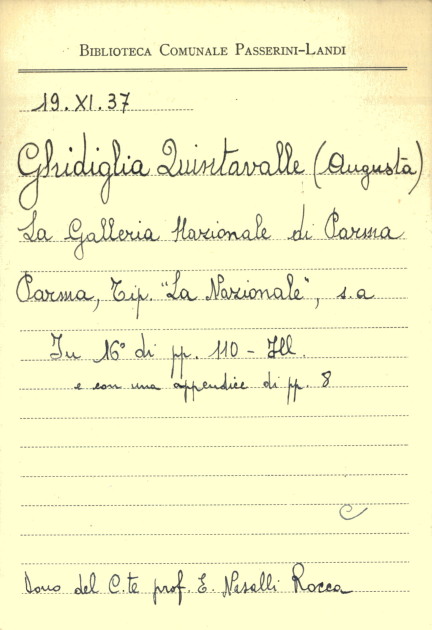 BIBLIOTECA COMUNALE PASSERINI-LANDI
19.XI.37
Ghidiglia Quintavalle (Augusta)
La Galleria Nazionale di Parma
Parma, Tip. "La Nazionale", s.a
In 16° di pp. 110 - Ill.
e con una appendice di pp. 8
C
Dono del C.te prof. E. Nasalli Rocca